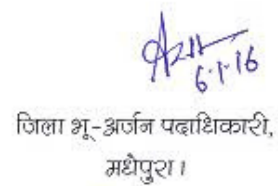 6.1.16
जिला भू-अर्जन पदाधिकारी,
मधेपुरा।